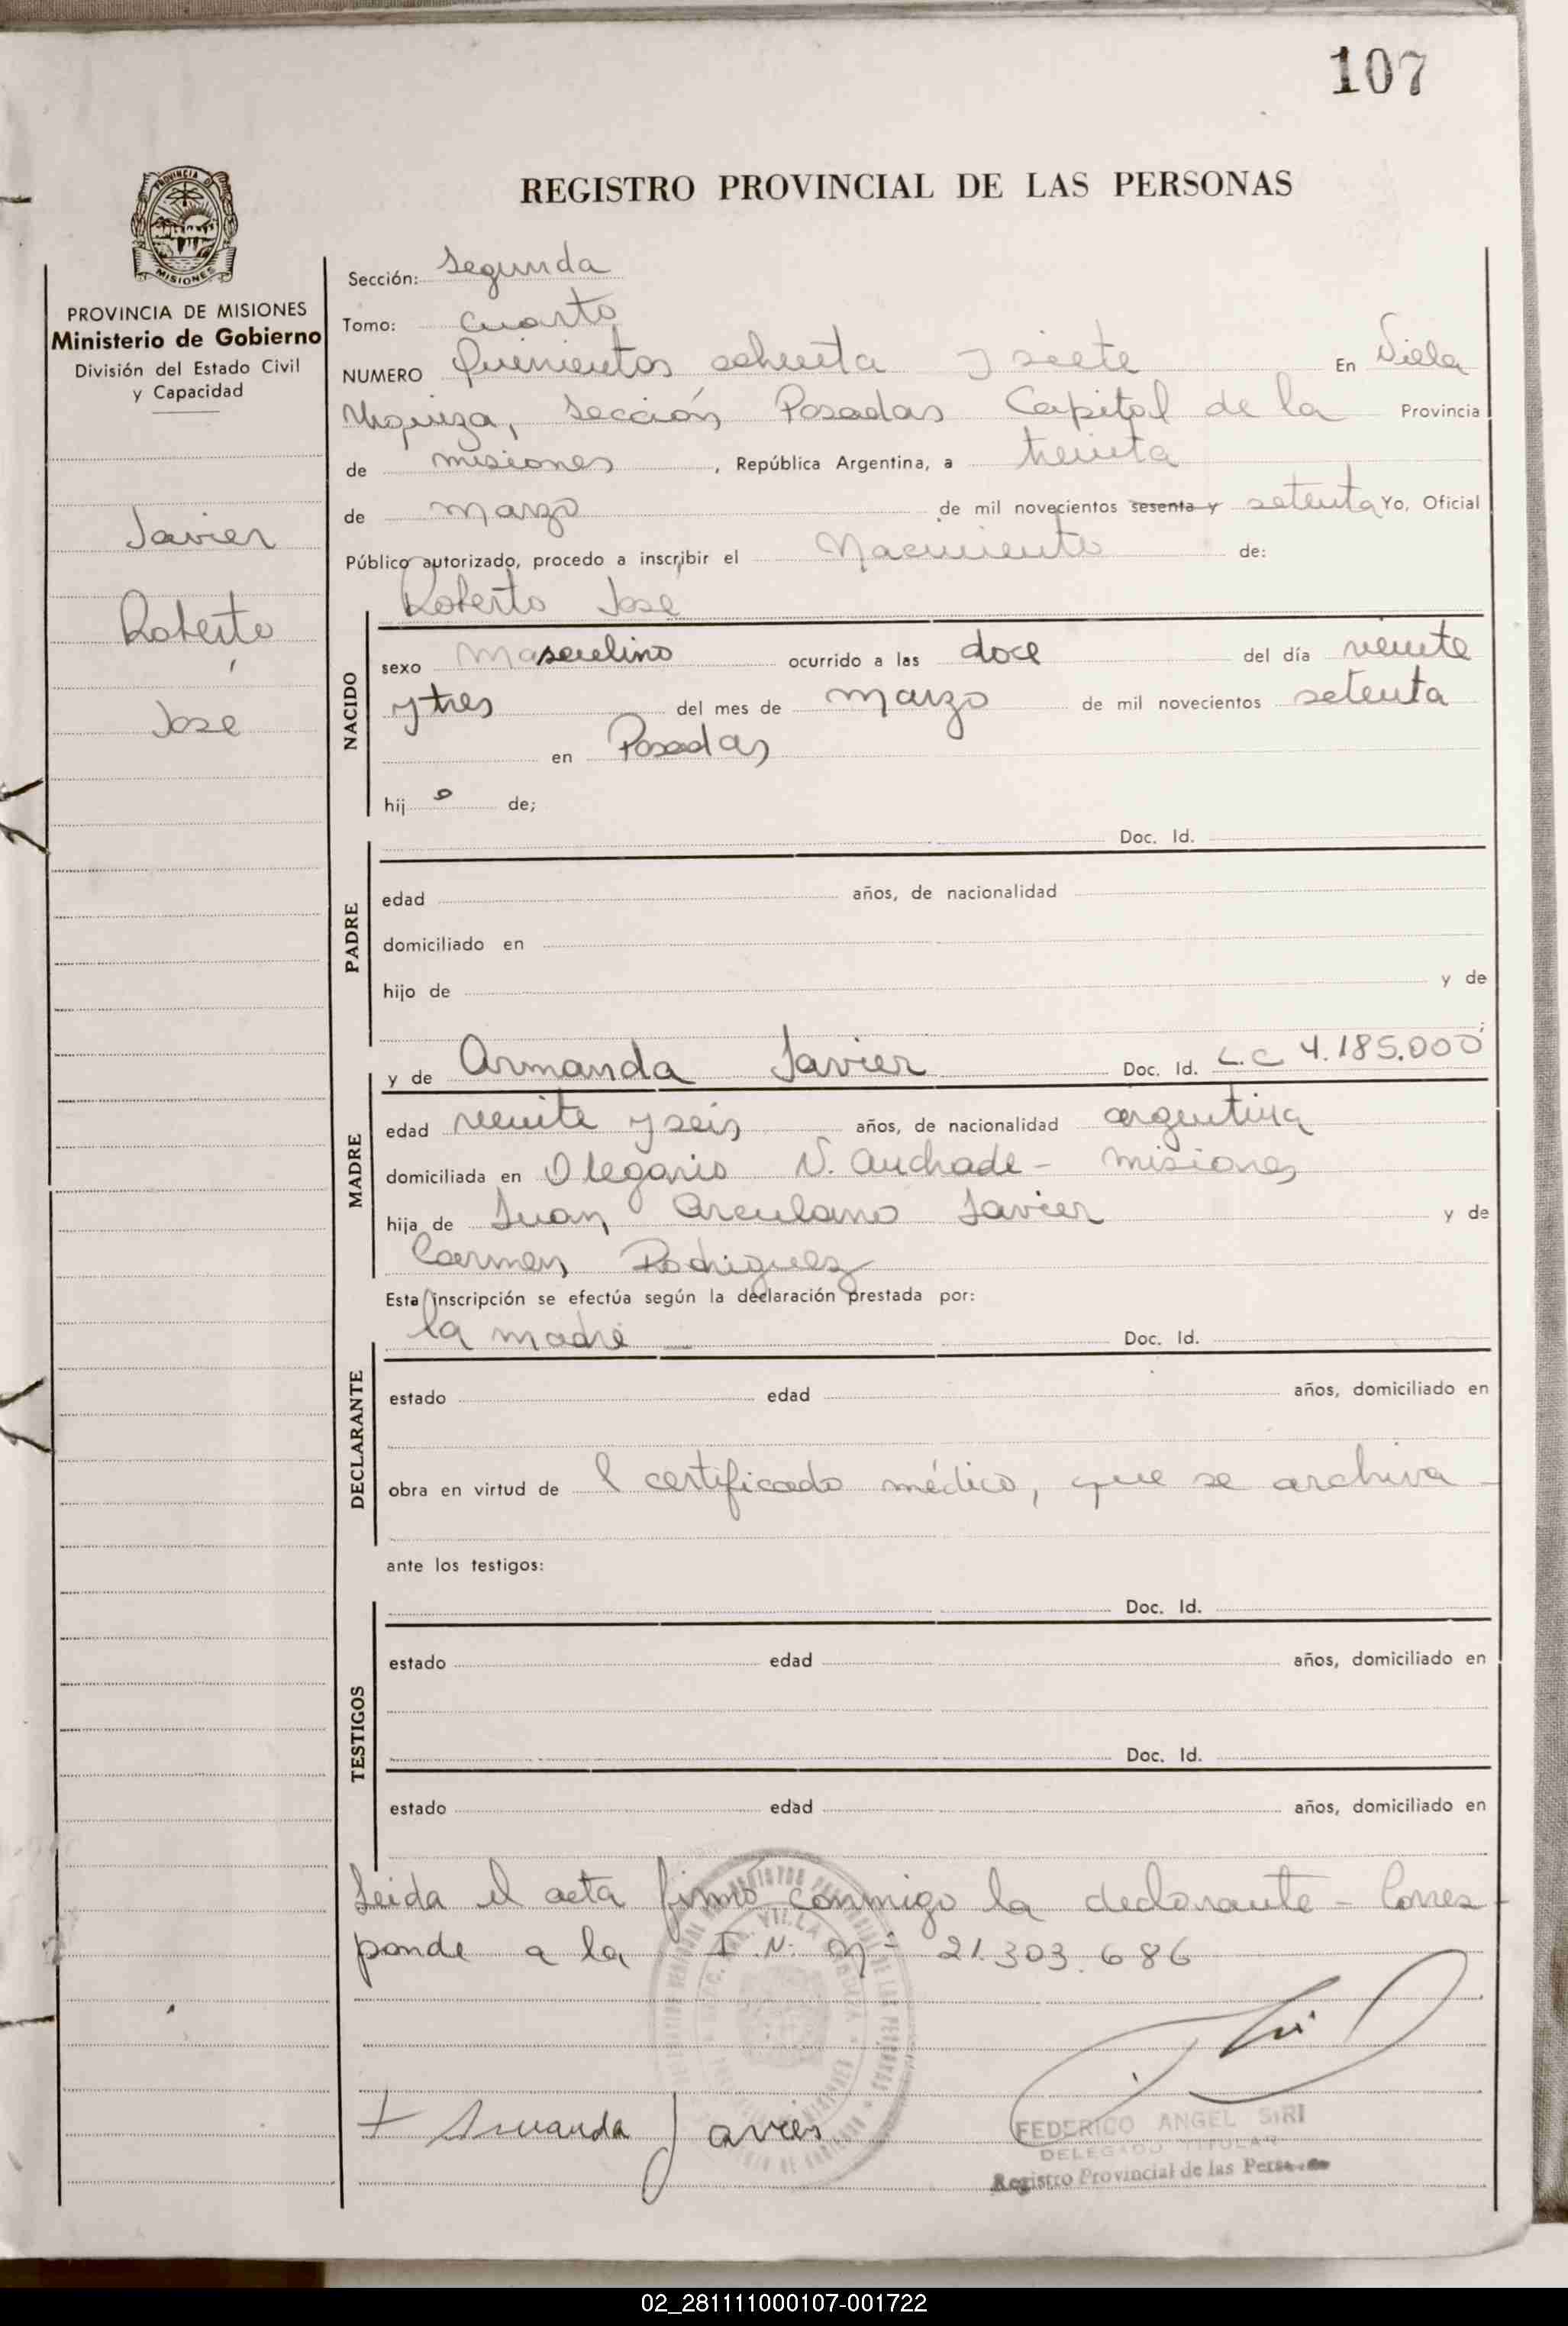 107
REGISTRO PROVINCIAL DE LAS PERSONAS
PROVINCIA DE MISIONES
MISIONES
PROVINCIA DE MISIONES
Ministerio de Gobierno
División del Estado Civil
y Capacidad
Javier
Roberto
José
Sección: Segunda
Tomo: cuarto
NUMERO Quinientos ochenta y siete En Villa
Urquiza, Sección Posadas Capital de la Provincia
de misiones, República Argentina, a treinta
de marzo de mil novecientos sesenta y setenta Yo, Oficial
Público autorizado, procedo a inscribir el Nacimiento de:
Roberto José
NACIDO
sexo Masculino ocurrido a las doce del día veinte
y tres del mes de marzo de mil novecientos setenta
en Posadas
hijo de;
Doc. Id.
PADRE
edad años, de nacionalidad
domiciliado en
hijo de y de
y de Armanda Javier Doc. Id. L.C 4.185.000
MADRE
edad veinte y seis años, de nacionalidad argentina
domiciliada en Olegario V. Andrade - misiones
hija de Juan Arculano Javier y de
Carmen Rodriguez
Esta inscripción se efectúa según la declaración prestada por:
la madre Doc. Id.
DECLARANTE
estado edad años, domiciliado en
obra en virtud de l certificado médico, que se archiva -
ante los testigos:
Doc. Id.
TESTIGOS
estado edad años, domiciliado en
Doc. Id.
estado edad años, domiciliado en
Leida el acta firmó conmigo la declarante - Corres-
ponde a la I.N. Nº 21.303.686
+ Armanda Javier
FEDERICO ANGEL SIRI
DELEGADO TITULAR
Registro Provincial de las Personas
02_281111000107-001722